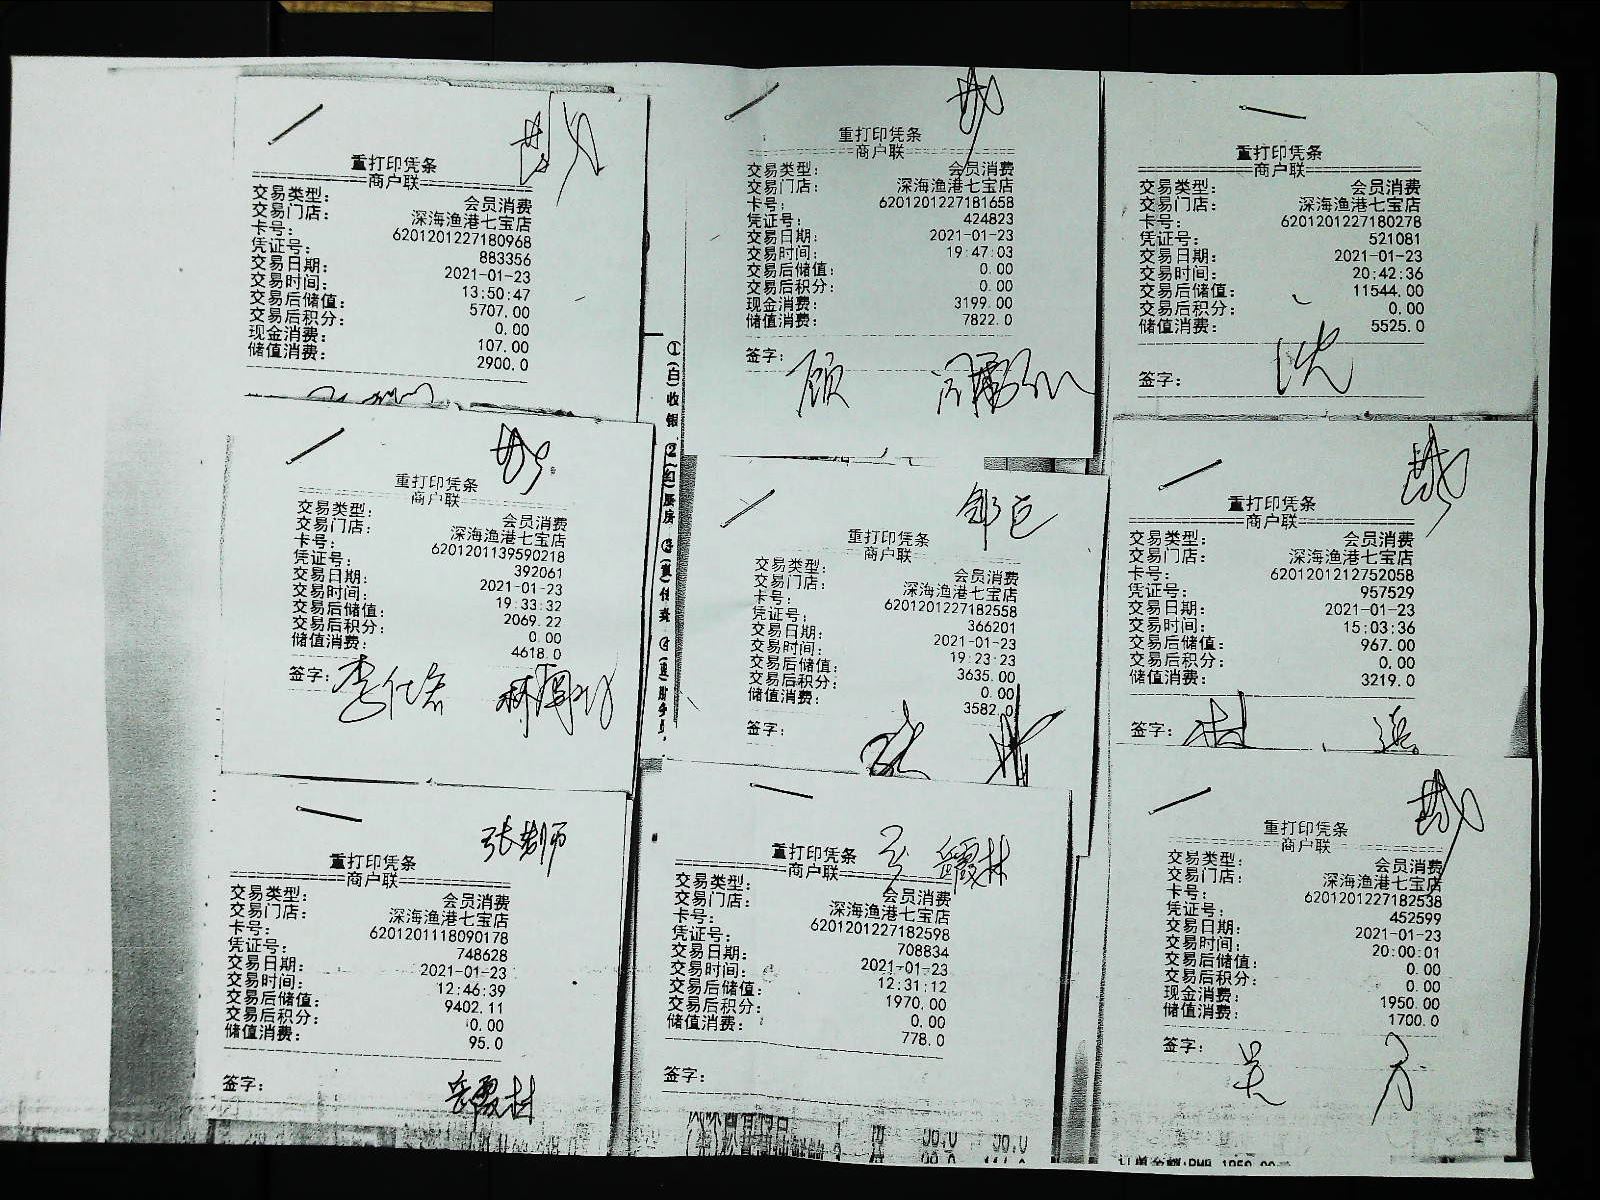 重打印凭条
商户联
交易类型： 会员消费
交易门店： 深海渔港七宝店
卡号： 6201201227180968
凭证号： 883356
交易日期： 2021-01-23
交易时间： 13:50:47
交易后储值： 5707.00
交易后积分： 0.00
现金消费： 107.00
储值消费： 2900.0
重打印凭条
商户联
交易类型： 会员消费
交易门店： 深海渔港七宝店
卡号： 6201201227181658
凭证号： 424823
交易日期： 2021-01-23
交易时间： 19:47:03
交易后储值： 0.00
交易后积分： 0.00
现金消费： 3199.00
储值消费： 7822.0
签字： 顾
重打印凭条
商户联
交易类型： 会员消费
交易门店： 深海渔港七宝店
卡号： 6201201227180278
凭证号： 521081
交易日期： 2021-01-23
交易时间： 20:42:36
交易后储值： 11544.00
交易后积分： 0.00
储值消费： 5525.0
签字： 沈
①(白)收银 ②(红)厨房
重打印凭条
商户联
交易类型： 会员消费
交易门店： 深海渔港七宝店
卡号： 6201201139590218
凭证号： 392061
交易日期： 2021-01-23
交易时间： 19:33:32
交易后储值： 2069.22
交易后积分： 0.00
储值消费： 4618.0
签字：
重打印凭条
商户联
交易类型： 会员消费
交易门店： 深海渔港七宝店
卡号： 6201201227182558
凭证号： 366201
交易日期： 2021-01-23
交易时间： 19:23:23
交易后储值： 3635.00
交易后积分： 0.00
储值消费： 3582.0
签字：
重打印凭条
商户联
交易类型： 会员消费
交易门店： 深海渔港七宝店
卡号： 6201201212752058
凭证号： 957529
交易日期： 2021-01-23
交易时间： 15:03:36
交易后储值： 967.00
交易后积分： 0.00
储值消费： 3219.0
签字：
张老师
重打印凭条
商户联
交易类型： 会员消费
交易门店： 深海渔港七宝店
卡号： 6201201118090178
凭证号： 748628
交易日期： 2021-01-23
交易时间： 12:46:39
交易后储值： 9402.11
交易后积分： 0.00
储值消费： 95.0
签字： 岳霞林
岳霞林
重打印凭条
商户联
交易类型： 会员消费
交易门店： 深海渔港七宝店
卡号： 6201201227182598
凭证号： 708834
交易日期： 2021-01-23
交易时间： 12:31:12
交易后储值： 1970.00
交易后积分： 0.00
储值消费： 778.0
签字：
重打印凭条
商户联
交易类型： 会员消费
交易门店： 深海渔港七宝店
卡号： 6201201227182538
凭证号： 452599
交易日期： 2021-01-23
交易时间： 20:00:01
交易后储值： 0.00
交易后积分： 0.00
现金消费： 1950.00
储值消费： 1700.0
签字： 吴